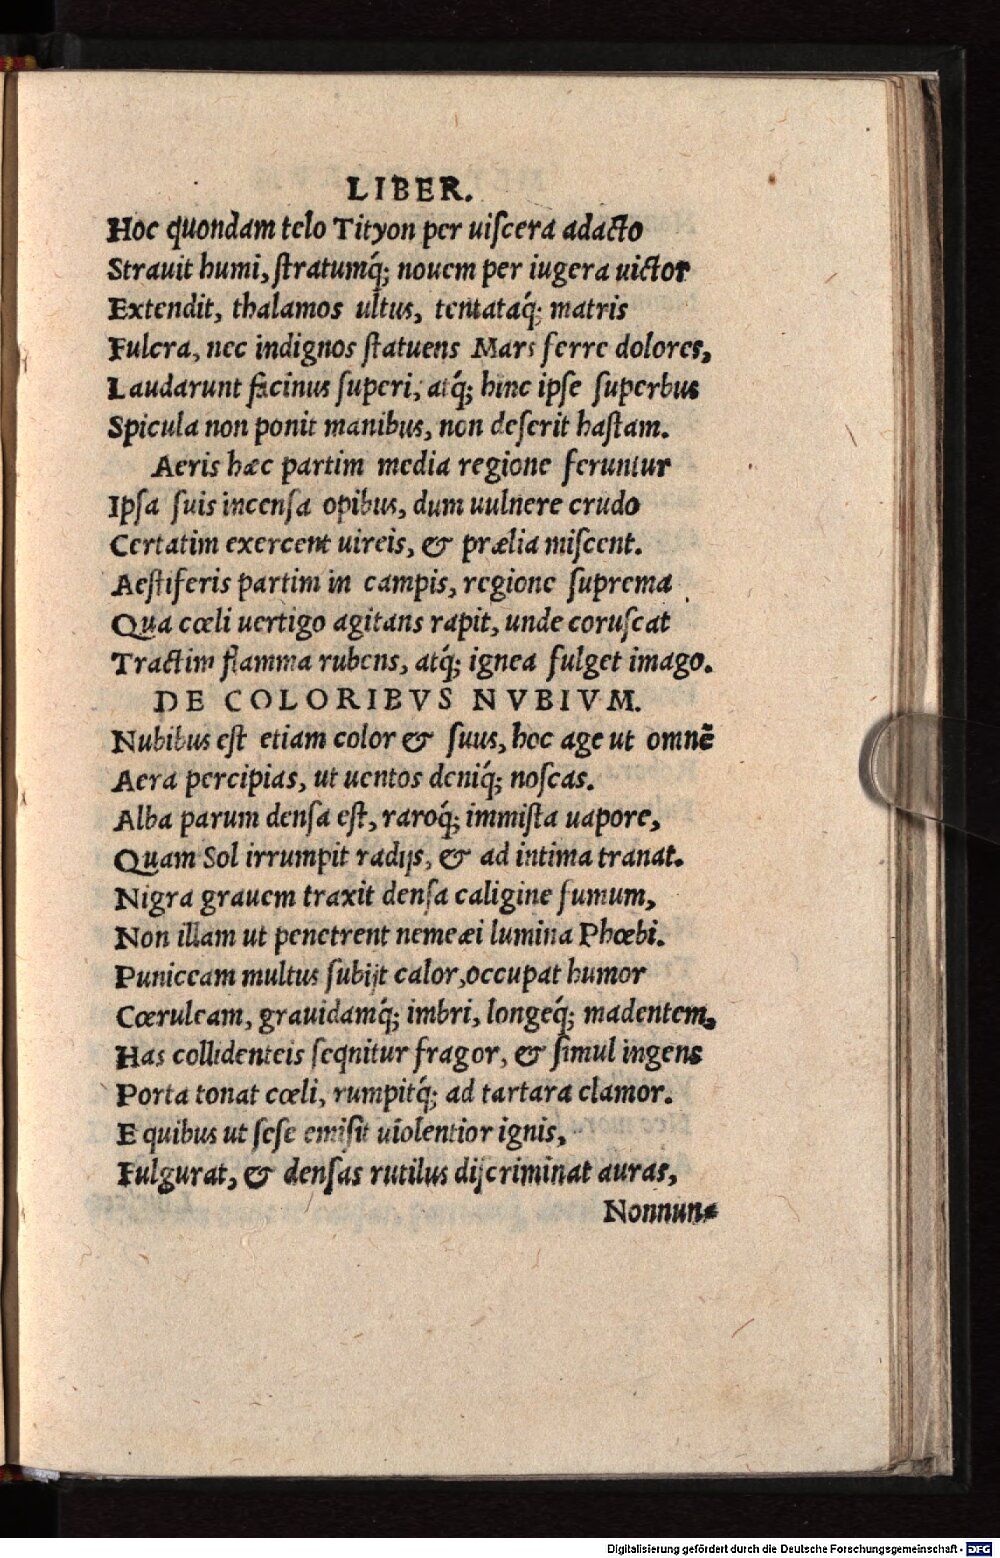 LIBER.
Hoc quondam telo Tityon per uiscera adacto
Strauit humi, stratumq́; nouem per iugera uictor
Extendit, thalamos ultus, tentataq́; matris
Fulcra, nec indignos statuens Mars ferre dolores,
Laudarunt facinus superi, atq́; hinc ipse superbus
Spicula non ponit manibus, non deserit hastam.
Aeris hæc partim media regione feruntur
Ipsa suis incensa opibus, dum uulnere crudo
Certatim exercent uireis, & prælia miscent.
Aestiferis partim in campis, regione suprema
Qua cœli uertigo agitans rapit, unde coruscat
Tractim flamma rubens, atq́; ignea fulget imago.
DE COLORIBVS NVBIVM.
Nubibus est etiam color & suus, hoc age ut omnẽ
Aera percipias, ut uentos deniq́; noscas.
Alba parum densa est, raroq́; immista uapore,
Quam Sol irrumpit radijs, & ad intima tranat.
Nigra grauem traxit densa caligine fumum,
Non illam ut penetrent nemeæi lumina Phœbi.
Puniceam multus subijt calor, occupat humor
Cœruleam, grauidamq́; imbri, longeq́; madentem,
Has collidenteis seqnitur fragor, & simul ingens
Porta tonat cœli, rumpitq́; ad tartara clamor.
E quibus ut sese emisit uiolentior ignis,
Fulgurat, & densas rutilus discriminat auras,
Nonnun-
Digitalisierung gefördert durch die Deutsche Forschungsgemeinschaft - DFG